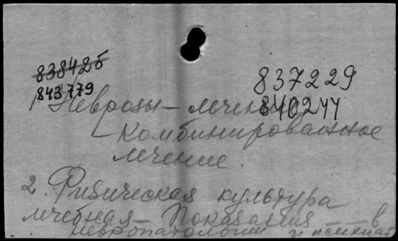 838425
843779
837229
840244
1. Неврозы – лечение
Комбинированное
лечение.
2. Физическая культура
лечебная – Показания в
невропатологии и психиат